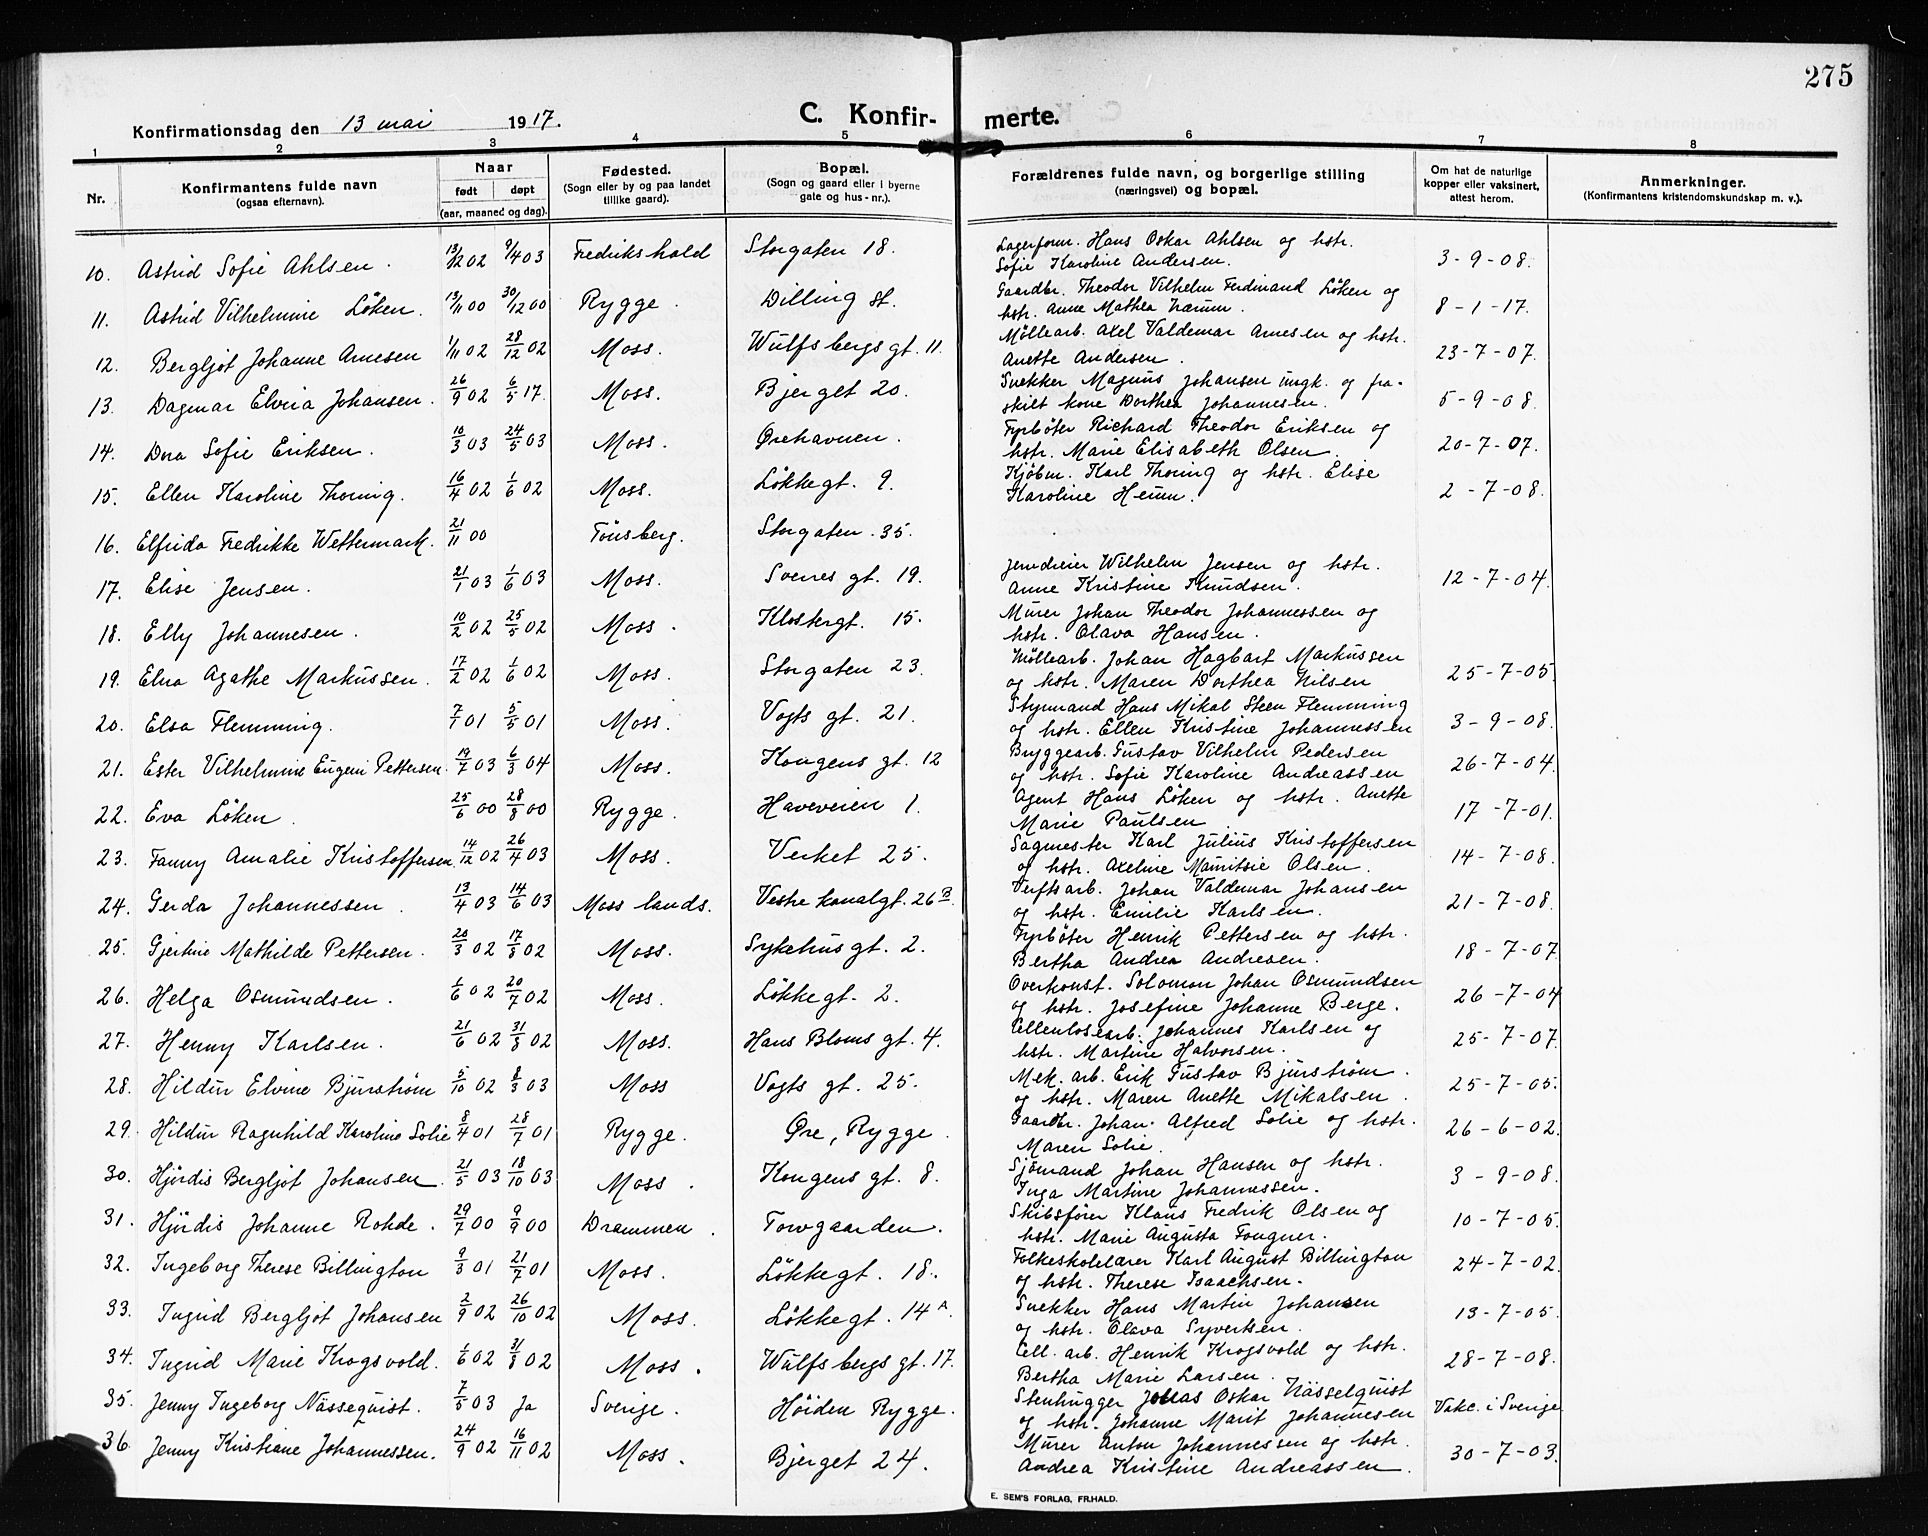 275
Konfirmationsdag den 13 mai 1917.
C. Konfir- merte.
1 2 3 4 5 6 7 8
Nr. Konfirmantens fulde navn (ogsaa efternavn). Naar født døpt (aar, maaned og dag). Fødested. (Sogn eller by og paa landet tillike gaard). Bopæl. (Sogn og gaard eller i byerne gate og hus-nr.). Forældrenes fulde navn, og borgerlige stilling (næringsvei) og bopæl. Om hat de naturlige kopper eller vaksinert, attest herom. Anmerkninger. (Konfirmantens kristendomskundskap m. v.).
10. Astrid Sofie Ahlsen. 13/12 02 9/4 03 Fredrikshald Storgaten 18. Lagerform. Hans Oskar Ahlsen og hstr. 3-9-08.
Sofie Karoline Andersen.
11. Astrid Vilhelmine Löken. 13/11 00 30/12 00 Rygge. Dilling st. Gaardbr. Theodor Vilhelm Ferdinand Löken og 8-1-17.
hstr. Anne Mathea Nærum.
12. Bergljot Johanne Arnesen 1/11 02 28/12 02 Moss. Wulfsbergs gt. 11. Møllearb. Axel Valdemar Arnesen og hstr. 23-7-07.
Anette Andersen.
13. Dagmar Elvira Johansen. 26/9 02 6/5 17. Moss. Bjerget 20. Snekker Magnus Johansen ungk. og fra- 5-9-08.
skilt kone Dorthea Johannesen.
14. Dora Sofie Eriksen. 10/3 03 24/5 03 Moss. Ørehavnen. Fyrbøter Richard Theodor Eriksen og 20-7-07.
hstr. Marie Elisabeth Olsen.
15. Ellen Karoline Thoring. 16/4 02 1/6 02 Moss. Løkkegt. 9. Kjøbm. Karl Thoring og hstr. Elise 2-7-08.
Karoline Heum.
16. Elfrida Fredrikke Wettermark. 21/11 00 Tønsberg. Storgaten 35.
17. Elise Jensen. 21/1 03 1/6 03 Moss. Svenes gt. 19. Jerndreier Wilhelm Jensen og hstr. 12-7-04.
Anne Kristine Knudsen.
18. Elly Johannesen. 10/2 02 25/5 02 Moss. Klostergt. 15. Murer Johan Theodor Johannessen og
hstr. Olava Hansen.
19. Elna Agathe Markussen. 17/2 02 1/6 02 Moss. Storgaten 23. Møllearb. Johan Hagbart Markussen 25-7-05.
og hstr. Maren Dorthea Nilsen
20. Elsa Flemming. 7/1 01 5/5 01 Moss. Vogts gt. 21. Styrmand Hans Mikal Steen Flemming 3-9-08.
og hstr. Ellen Kristine Johannessen
21. Ester Vilhelmine Eugeni Pettersen. 19/7 03 6/3 04 Moss. Kongens gt. 12 Bryggearb. Gustav Vilhelm Pedersen 26-7-04.
og hstr. Sofie Karoline Andreassen
22. Eva Löken. 25/6 00 28/8 00 Rygge. Haveveien 1. Agent Hans Löken og hstr. Anette 17-7-01.
Marie Paulsen
23. Fanny Amalie Kristoffersen. 14/12 02 26/4 03 Moss. Verket 25. Sagmester Karl Julius Kristoffersen 14-7-08.
og hstr. Axeline Mauritsie Olsen.
24. Gerda Johannessen. 13/4 03 14/6 03 Moss lands. Vestre kanalgt. 26 B. Verftsarb. Johan Valdemar Johansen 21-7-08.
og hstr. Emilie Karlsen.
25. Gjertine Mathilde Pettersen. 20/3 02 17/8 02 Moss. Sykehus gt. 2. Fyrbøter Henrik Pettersen og hstr. 18-7-07
Bertha Andrea Andresen.
26. Helga Osmundsen. 1/6 02 20/7 02 Moss. Løkkegt. 2. Overkonst. Solomon Johan Osmundsen 26-7-04
og hstr. Josefine Johanne Berge.
27. Henny Karlsen. 21/6 02 31/8 02 Moss. Hans Bloms gt. 4. Cellulosearb. Johannes Karlsen og 25-7-07.
hstr. Martine Halvorsen.
28. Hildur Elvine Bjurstrøm 5/10 02 8/3 03 Moss Vogts gt. 25. Mek. arb. Erik Gustav Bjurstrøm. 25-7-05.
og hstr. Maren Anette Mikalsen.
29. Hildur Ragnhild Karoline Solie 8/4 01 28/7 01 Rygge. Øre, Rygge. Gaardbr. Johan Alfred Solie og hstr. 26-6-02.
Maren Solie.
30. Hjørdis Bergljot Johansen. 21/5 03 18/10 03 Moss. Kongens gt. 8. Sjømand Johan Hansen og hstr. 3-9-08.
Inga Martine Johannessen.
31. Hjørdis Johanne Rohde. 29/7 00 9/9 00 Drammen. Torvgaarden. Skibsfører Klaus Fredrik Olsen og 10-7-05.
hstr. Marie Augusta Fougner.
32. Ingeborg Therese Billington 9/3 01 21/7 01 Moss. Løkkegt. 18. Folkeskolelærer Karl August Billington 24-7-02.
og hstr. Therese Isaachsen.
33. Ingrid Bergljot Johansen 2/9 02 26/10 02 Moss. Løkkegt. 14 A. Snekker Hans Martin Johansen 13-7-05.
og hstr. Olava Syvertsen.
34. Ingrid Marie Krogsvold. 1/6 02 31/8 02 Moss. Wulfsbergs gt. 17. Cell. arb. Henrik Krogsvold og hstr. 28-7-08.
Bertha Marie Larsen.
35. Jenny Ingeborg Nässequist. 7/5 03 Ja Sverige. Høiden Rygge. Stenhugger Jonas Oskar Nässelquist Vakc. i Sverige
og hstr. Johanne Marit Johannesen
36. Jenny Kristiane Johannessen. 24/9 02 16/11 02 Moss. Bjerget 24. Murer Anton Johannessen og hstr. 30-7-03.
Andrea Kristine Andreassen.
E. SEM'S FORLAG, FR.HALD.